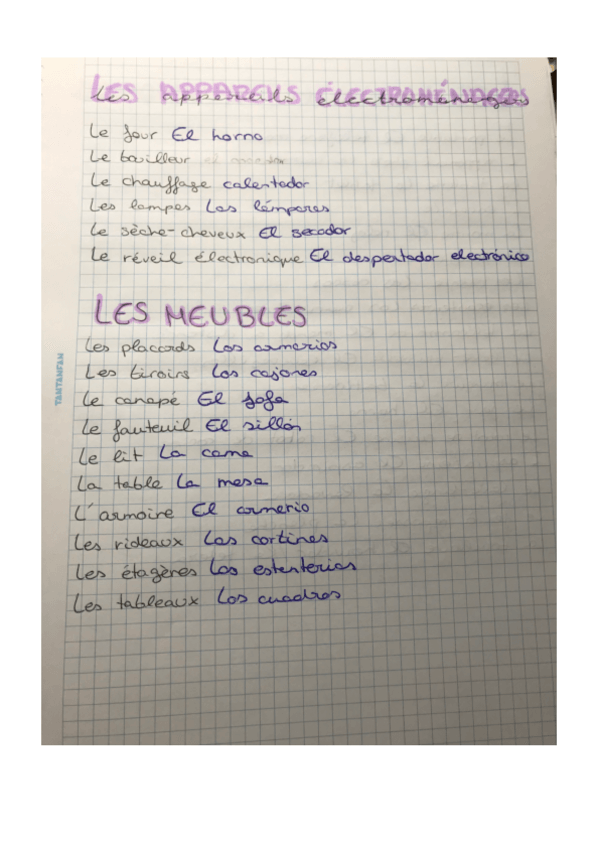 LES APPAREILS ÉLECTROMÉNAGERS
Le four El horno
Le bouilleur
Le chauffage calentador
Les lampes Las lámparas
Le sèche-cheveux El secador
Le réveil électronique El despertador electrónico
LES MEUBLES
Les placards Los armarios
Les tiroirs Los cajones
Le canapé El sofa
Le fauteuil El sillón
Le lit La cama
La table La mesa
L'armoire El armario
Les rideaux Las cortinas
Les étagères Las estanterias
Les tableaux Los cuadros
TANTANFAN